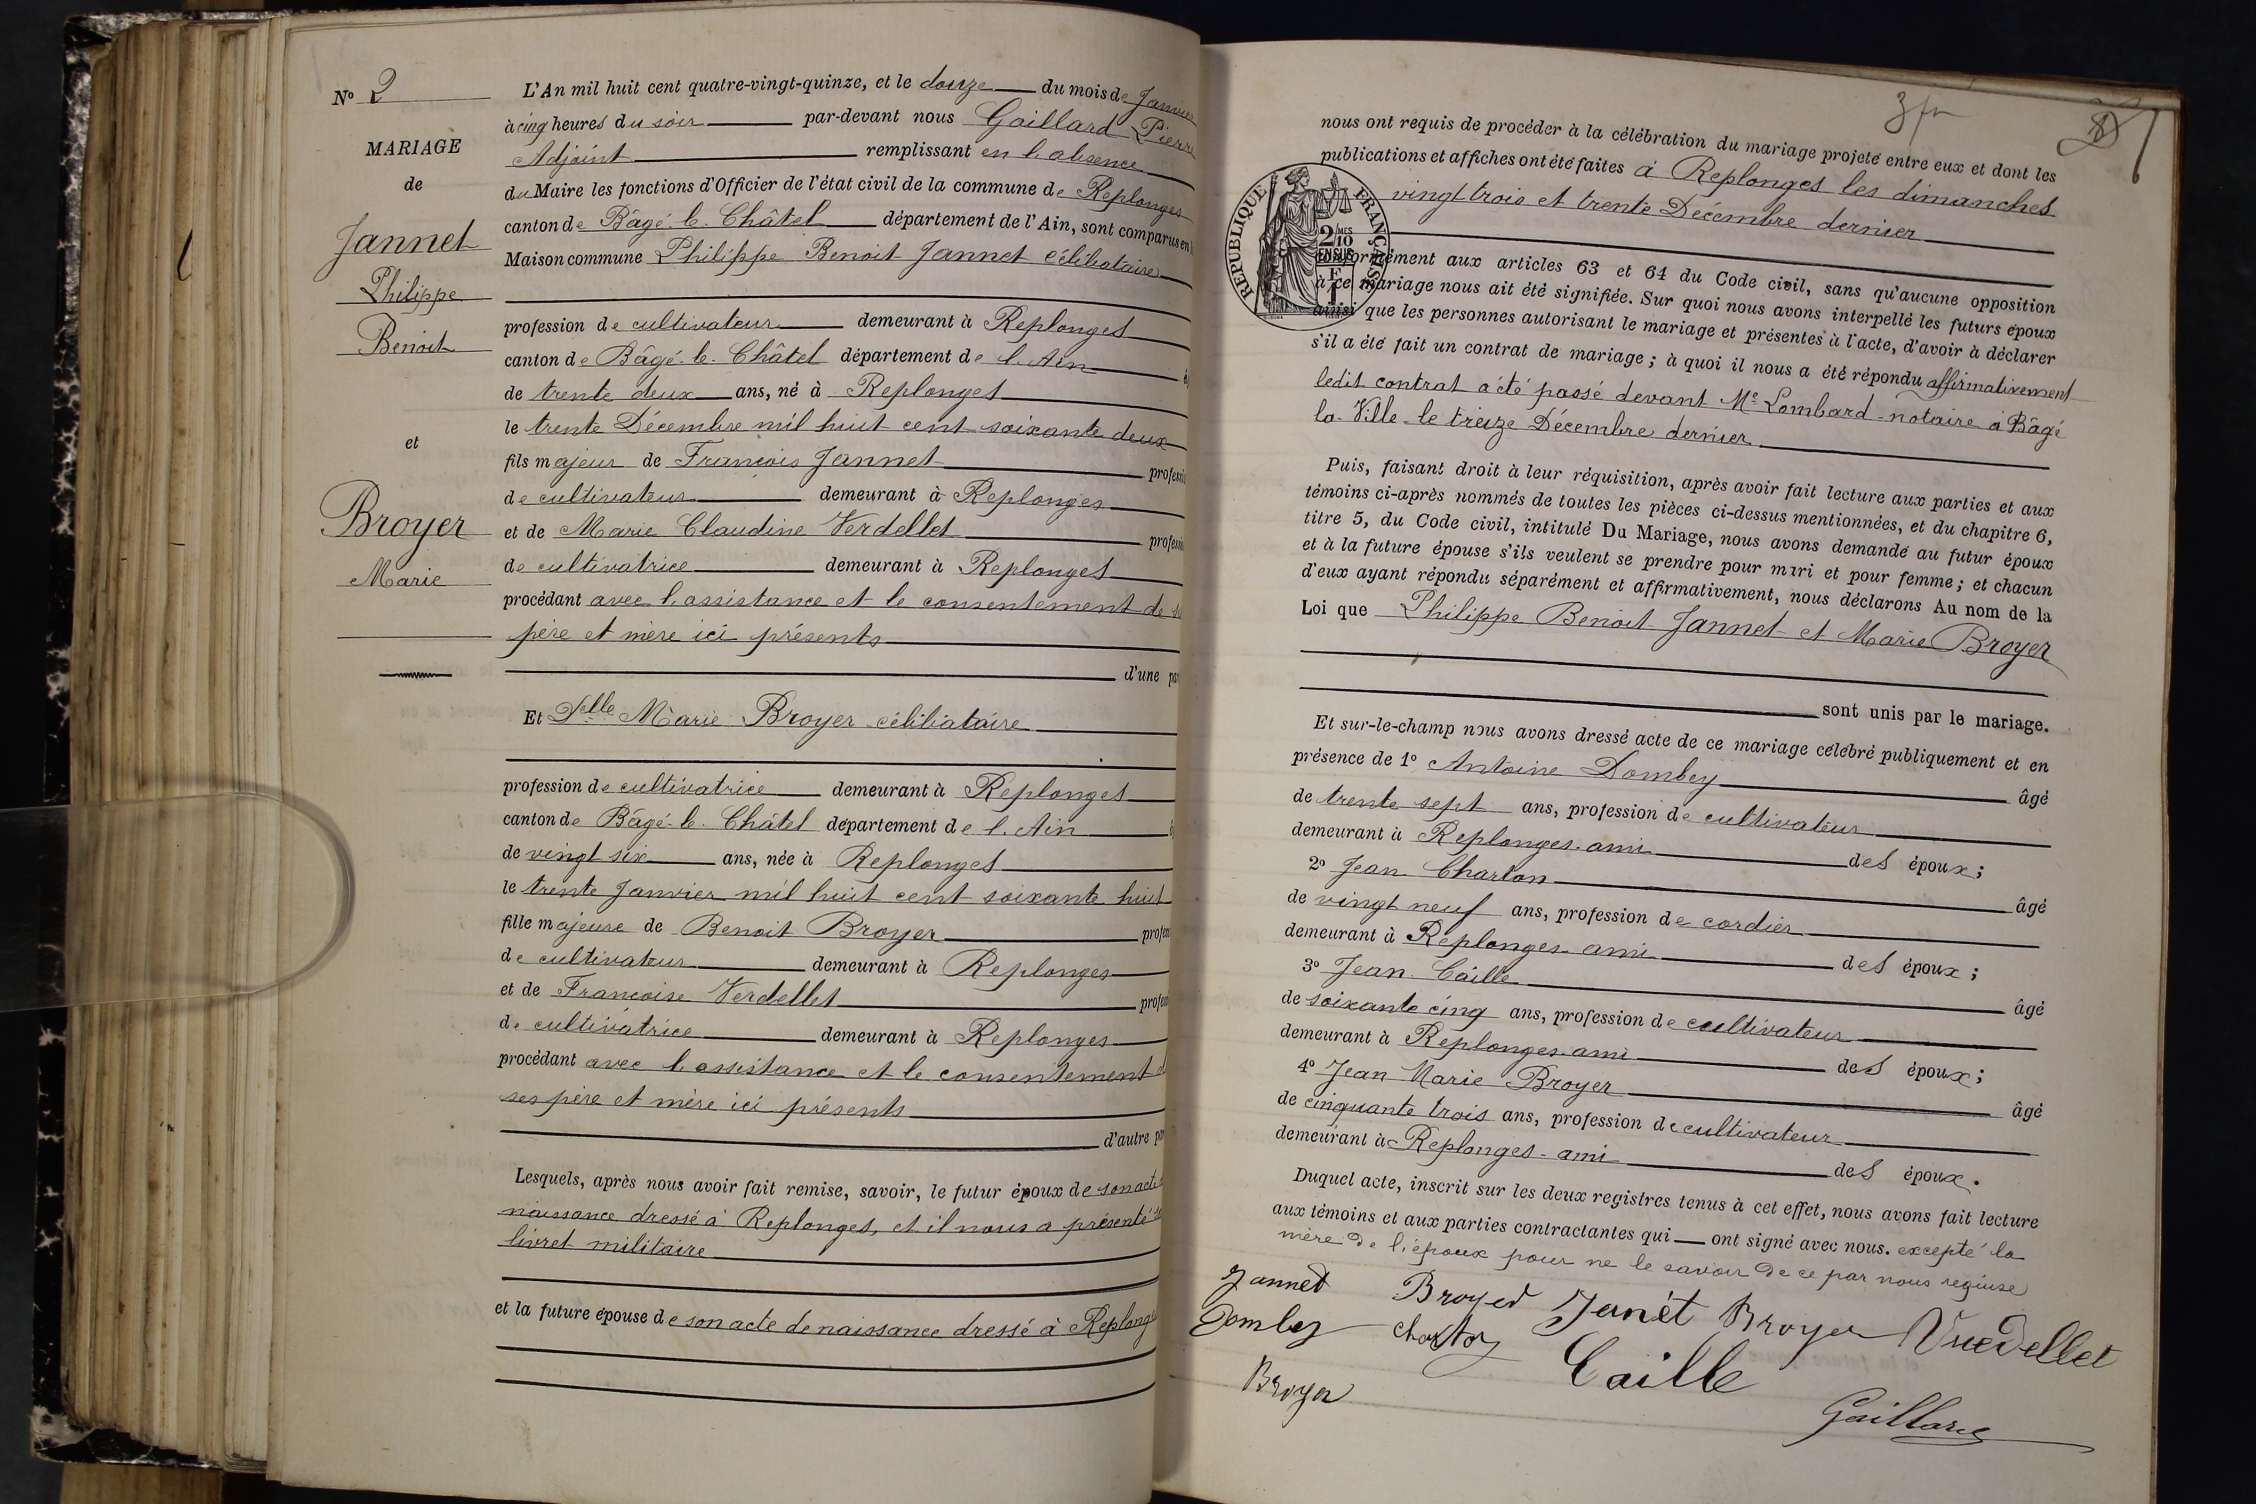 N° 2
MARIAGE
de
Jannet
Philippe
Benoit
et
Broyer
Marie
L'An mil huit cent quatre-vingt-quinze, et le douze du mois de Janvier
à cinq heures du soir par-devant nous Gaillard Pierre
Adjoint remplissant en l'absence
du Maire les fonctions d'Officier de l'état civil de la commune de Replonges
canton de Bâgé-le-Châtel département de l'Ain, sont comparus en
Maison commune Philippe Benoit Jannet célibataire
profession de cultivateur demeurant à Replonges
canton de Bâgé-le-Châtel département de l'Ain
de trente deux ans, né à Replonges
le trente Décembre mil huit cent soixante deux
fils majeur de François Jannet professi
de cultivateur demeurant à Replonges
et de Marie Claudine Verdellet professi
de cultivatrice demeurant à Replonges
procédant avec l'assistance et le consentement de
père et mère ici présents
d'une pa
Et Delle Marie Broyer célibataire
profession de cultivatrice demeurant à Replonges
canton de Bâgé-le-Châtel département de l'Ain
de vingt six ans, née à Replonges
le trente Janvier mil huit cent soixante huit
fille majeure de Benoit Broyer profes
de cultivateur demeurant à Replonges
et de Françoise Verdellet profes
de cultivatrice demeurant à Replonges
procédant avec l'assistance et le consentement d
ses père et mère ici présents
d'autre p
Lesquels, après nous avoir fait remise, savoir, le futur époux de son acte
naissance dressé à Replonges, et il nous a présenté
livret militaire
et la future épouse de son acte de naissance dressé à Replong
nous ont requis de procéder à la célébration du mariage projeté entre eux et dont les
publications et affiches ont été faites à Replonges les dimanches
vingt trois et trente Décembre dernier
RÉPUBLIQUE FRANÇAISE
2/10 MES
EN SUS
conformément aux articles 63 et 64 du Code civil, sans qu'aucune opposition
à ce mariage nous ait été signifiée. Sur quoi nous avons interpellé les futurs époux
ainsi que les personnes autorisant le mariage et présentes à l'acte, d'avoir à déclarer
s'il a été fait un contrat de mariage; à quoi il nous a été répondu affirmativement
ledit contrat a été passé devant Me Lombard notaire à Bâgé
la-Ville le treize Décembre dernier
Puis, faisant droit à leur réquisition, après avoir fait lecture aux parties et aux
témoins ci-après nommés de toutes les pièces ci-dessus mentionnées, et du chapitre 6,
titre 5, du Code civil, intitulé Du Mariage, nous avons demandé au futur époux
et à la future épouse s'ils veulent se prendre pour mari et pour femme; et chacun
d'eux ayant répondu séparément et affirmativement, nous déclarons Au nom de la
Loi que Philippe Benoit Jannet et Marie Broyer
sont unis par le mariage.
Et sur-le-champ nous avons dressé acte de ce mariage célébré publiquement et en
présence de 1° Antoine Dombey âgé
de trente sept ans, profession de cultivateur
demeurant à Replonges ami des époux;
2° Jean Charton âgé
de vingt neuf ans, profession de cordier
demeurant à Replonges ami des époux;
3° Jean Caille âgé
de soixante cinq ans, profession de cultivateur
demeurant à Replonges ami des époux;
4° Jean Marie Broyer âgé
de cinquante trois ans, profession de cultivateur
demeurant à Replonges ami des époux.
Duquel acte, inscrit sur les deux registres tenus à cet effet, nous avons fait lecture
aux témoins et aux parties contractantes qui ont signé avec nous. excepté la
mère de l'époux pour ne le savoir de ce par nous requise
Jannet Broyer Janét Broyer Vuedellet
Dombey Charton Caille
Broyer
Gaillard